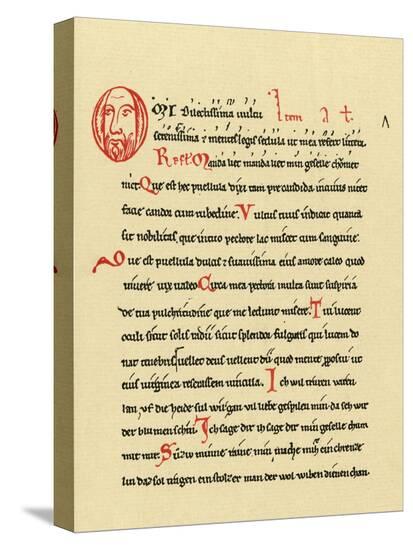 O Mi Dilectissima vultu Item a t.
serenissima et mente legis sedula ut mea refert littera.
Refl. Manda liet manda liet min geselle chomet
niet. Que est hec puellula dixi tam precandida in cuius nitet
facie candor cum rubedine. Vultus tuus indicat quanta
sit nobilitas. que in tuo pectore lac miscet cum sanguine.
Que est puellula dulcis et suavissima eius amore caleo quod
vivere vix valeo. Circa mea pectora multa sunt suspiria
de tua pulchritudine que me ledunt misere. Tui lucent
oculi sicut solis radii sicut splendor fulguris qui lucem do
nat tenebris. Vellet deus vellent dii quod mente proposui ut
eius virginea reserassem vincula. Ich wil truren varen
lan. vf die heide sul wir gan. vil liebe gespilen min. da seh wir
der blumen schin. Ich sage dir ih sage dir min geselle chum
mit mir. Süziu minne raine min mache mir ein chrenze
lin daz sol tragen ein stolzer man der wol wiben dienen chan.